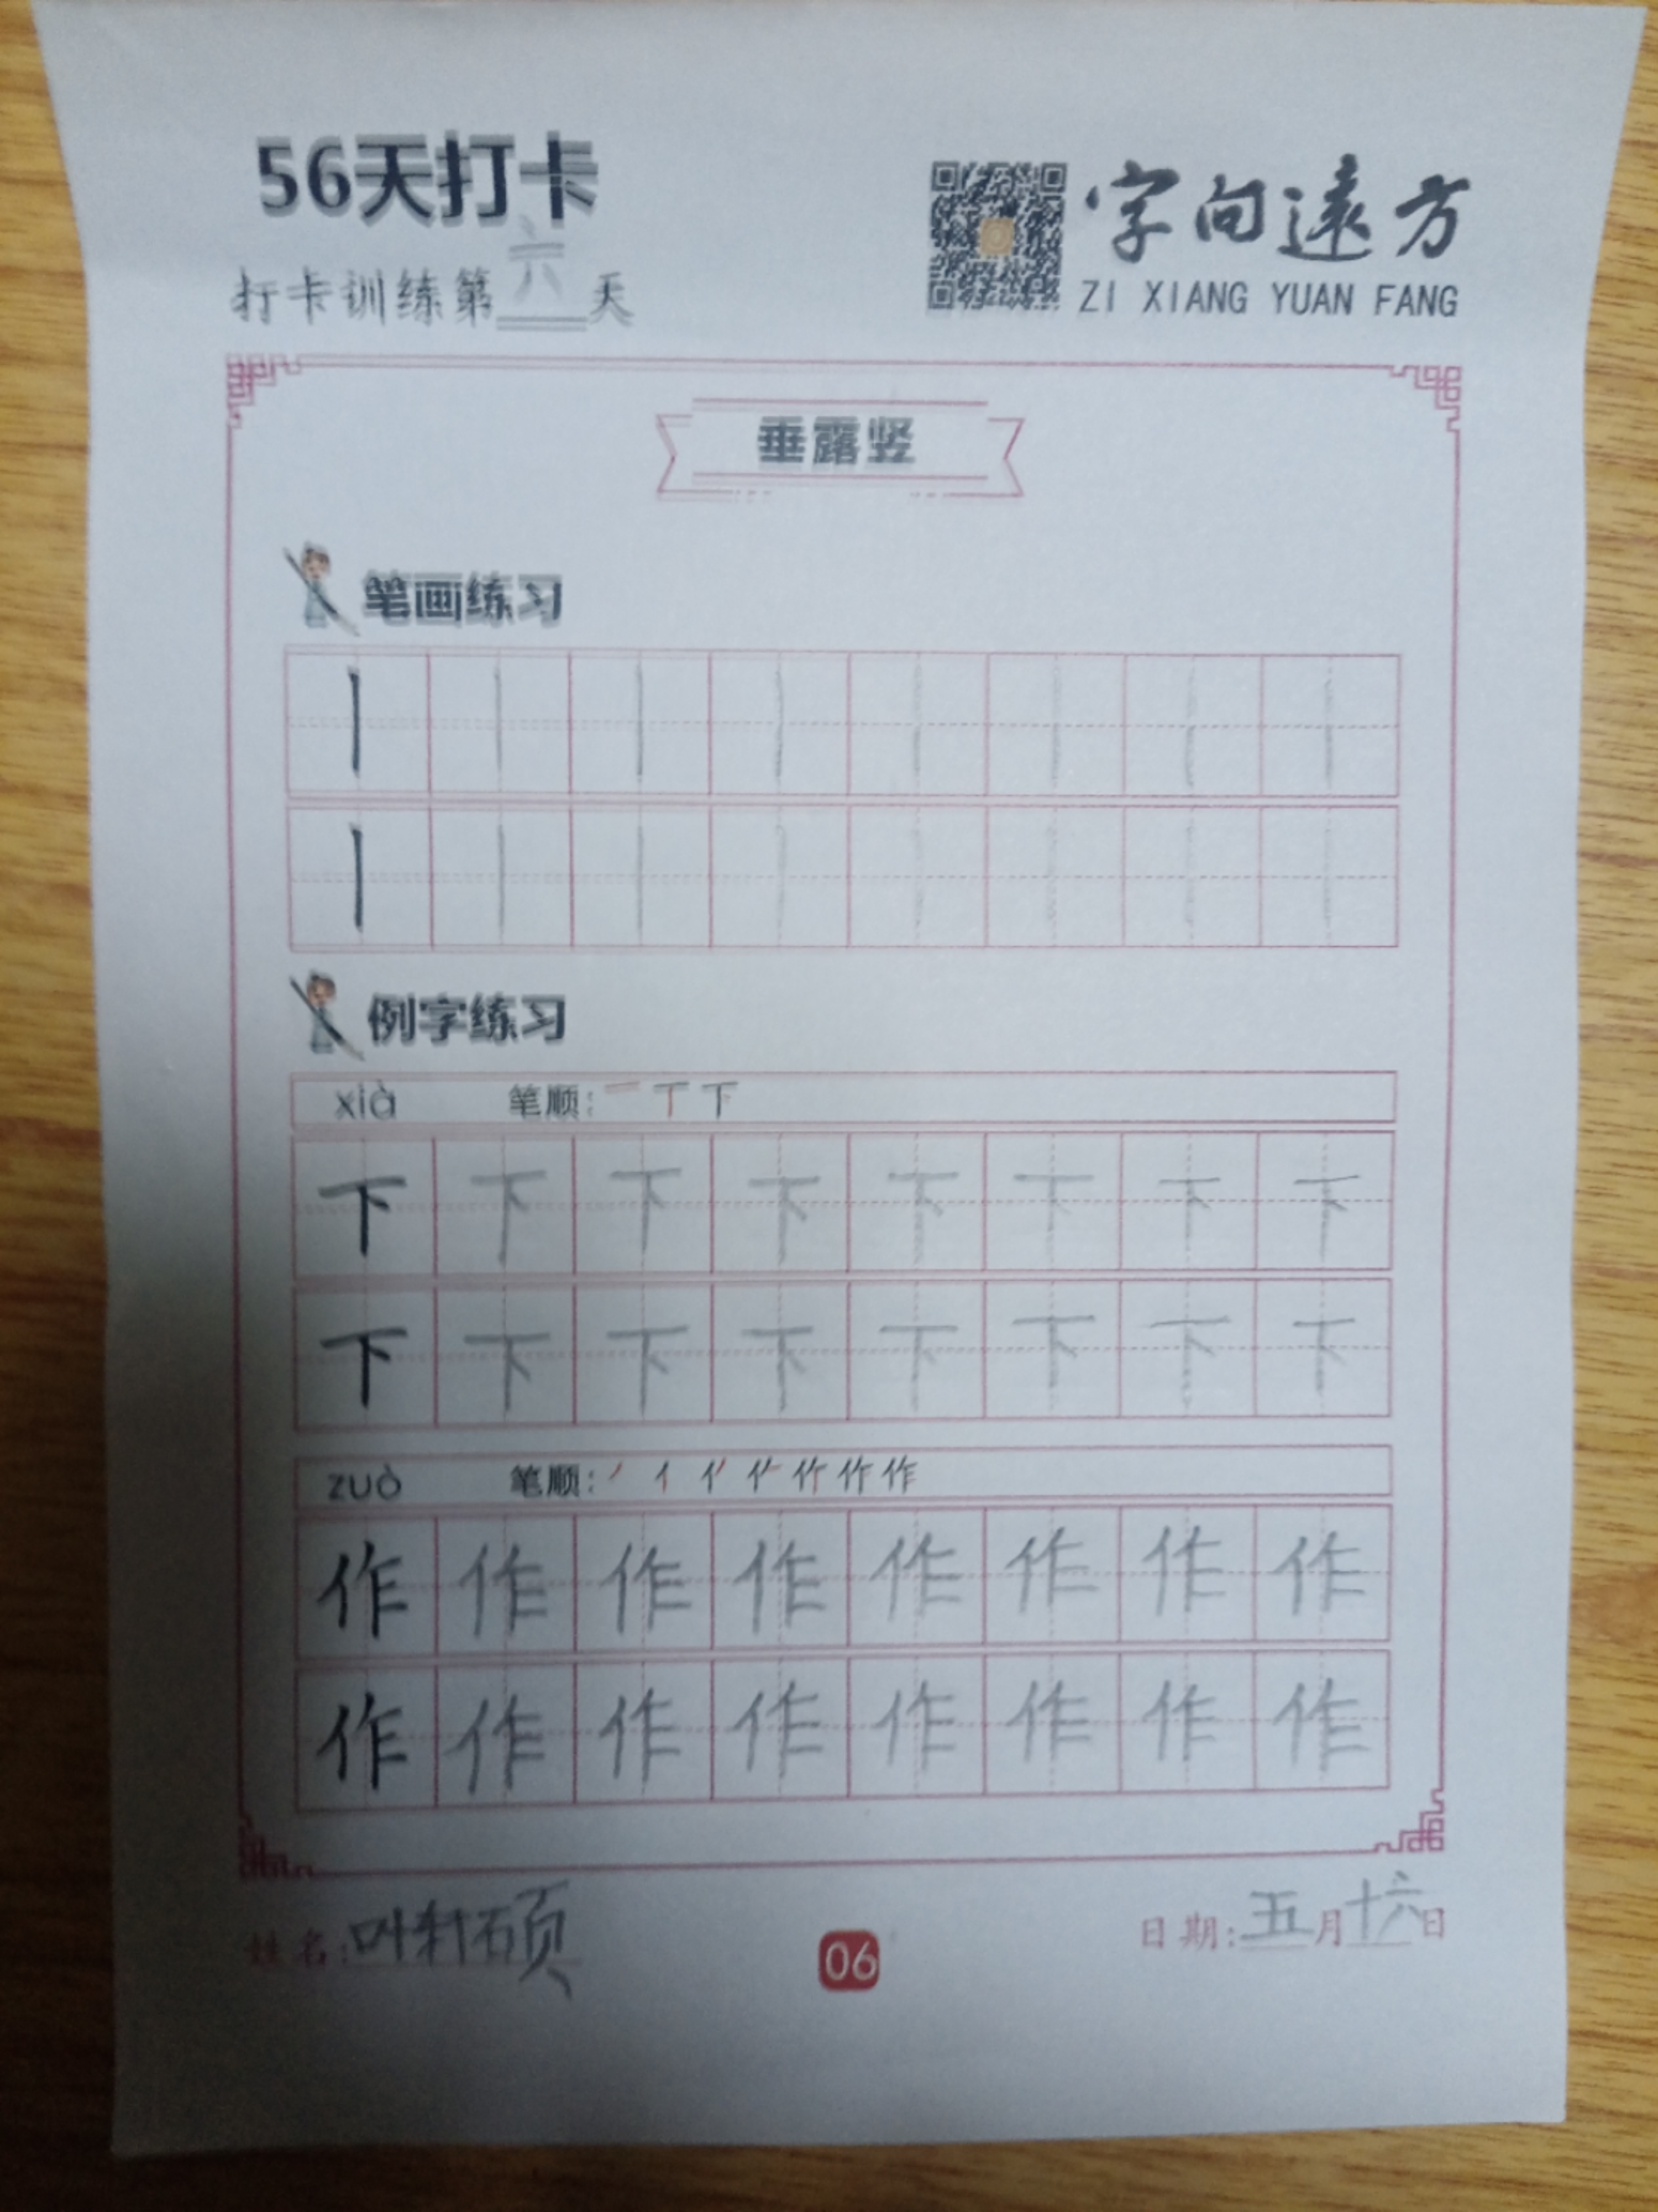 56天打卡
字向遠方
打卡训练第六天
ZI XIANG YUAN FANG
垂露竖
笔画练习
丨 丨 丨 丨 丨 丨 丨 丨
丨 丨 丨 丨 丨 丨 丨 丨
例字练习
xià 笔顺: 一 丅 下
下 下 下 下 下 下 下 下
下 下 下 下 下 下 下 下
zuò 笔顺: 作
作 作 作 作 作 作 作 作
作 作 作 作 作 作 作 作
姓名:叶轩硕
06
日期:五月十六日